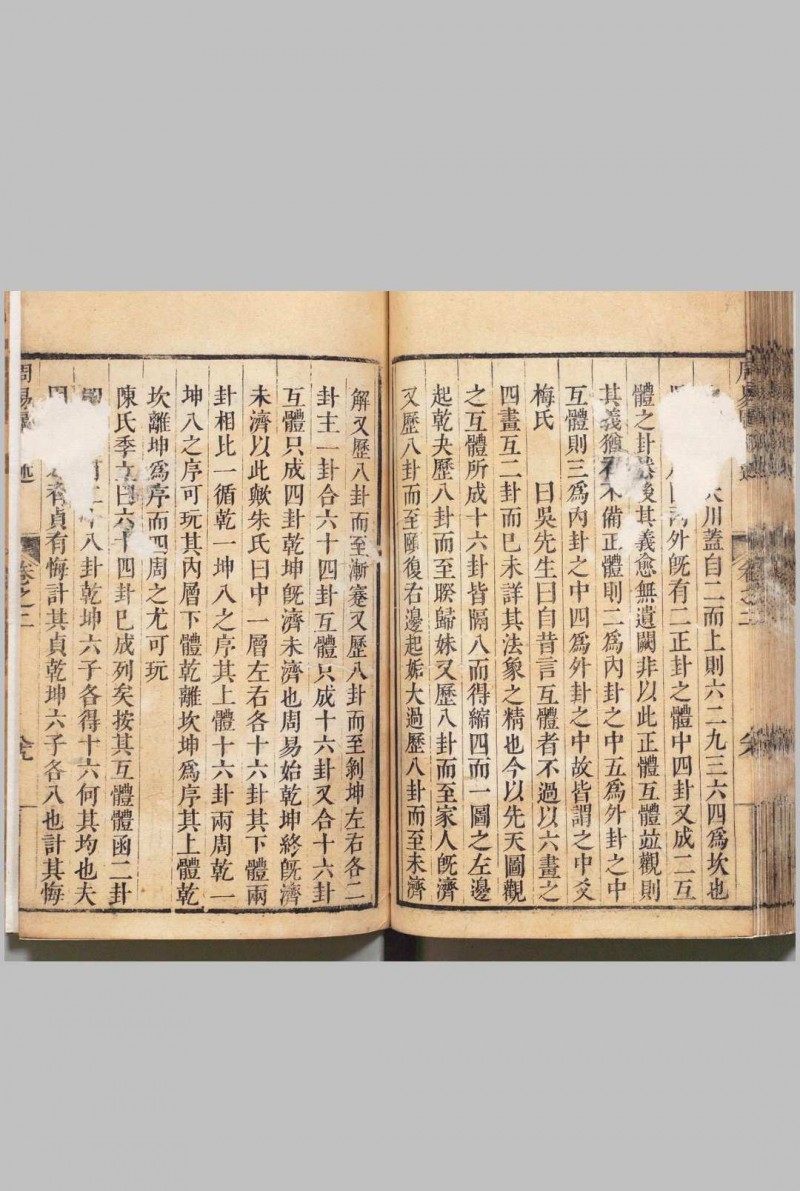 大川蓋自二而上則六二九三六四爲坎也
內外既有二正卦之體中四卦又成二互
體之卦然後其義愈無遺闕非以此正體互體並觀則
其義猶有不備正體則二爲內卦之中五爲外卦之中
互體則三爲內卦之中四爲外卦之中故皆謂之中爻
梅氏 曰吳先生曰自昔言互體者不過以六畫之
四畫互二卦而已未詳其法象之精也今以先天圖觀
之互體所成十六卦皆隔八而得縮四而一圖之左邊
起乾夬歷八卦而至睽歸妹又歷八卦而至家人旣濟
又歷八卦而至頤復右邊起姤大過歷八卦而至未濟
解又歷八卦而至漸蹇又歷八卦而至剝坤左右各二
卦主一卦合六十四卦互體只成十六卦又合十六卦
互體只成四卦乾坤旣濟未濟也周易始乾坤終旣濟
未濟以此歟朱氏曰中一層左右各十六卦其下體兩
卦相比一循乾一坤八之序其上體十六卦兩周乾一
坤八之序可玩其內層下體乾離坎坤爲序其上體乾
坎離坤爲序而四周之尤可玩
陳氏季立曰六十四卦已成列矣按其互體體函二卦
八卦乾坤六子各得十六何其均也夫
者貞有悔計其貞乾坤六子各八也計其悔
周易
述
卷之二